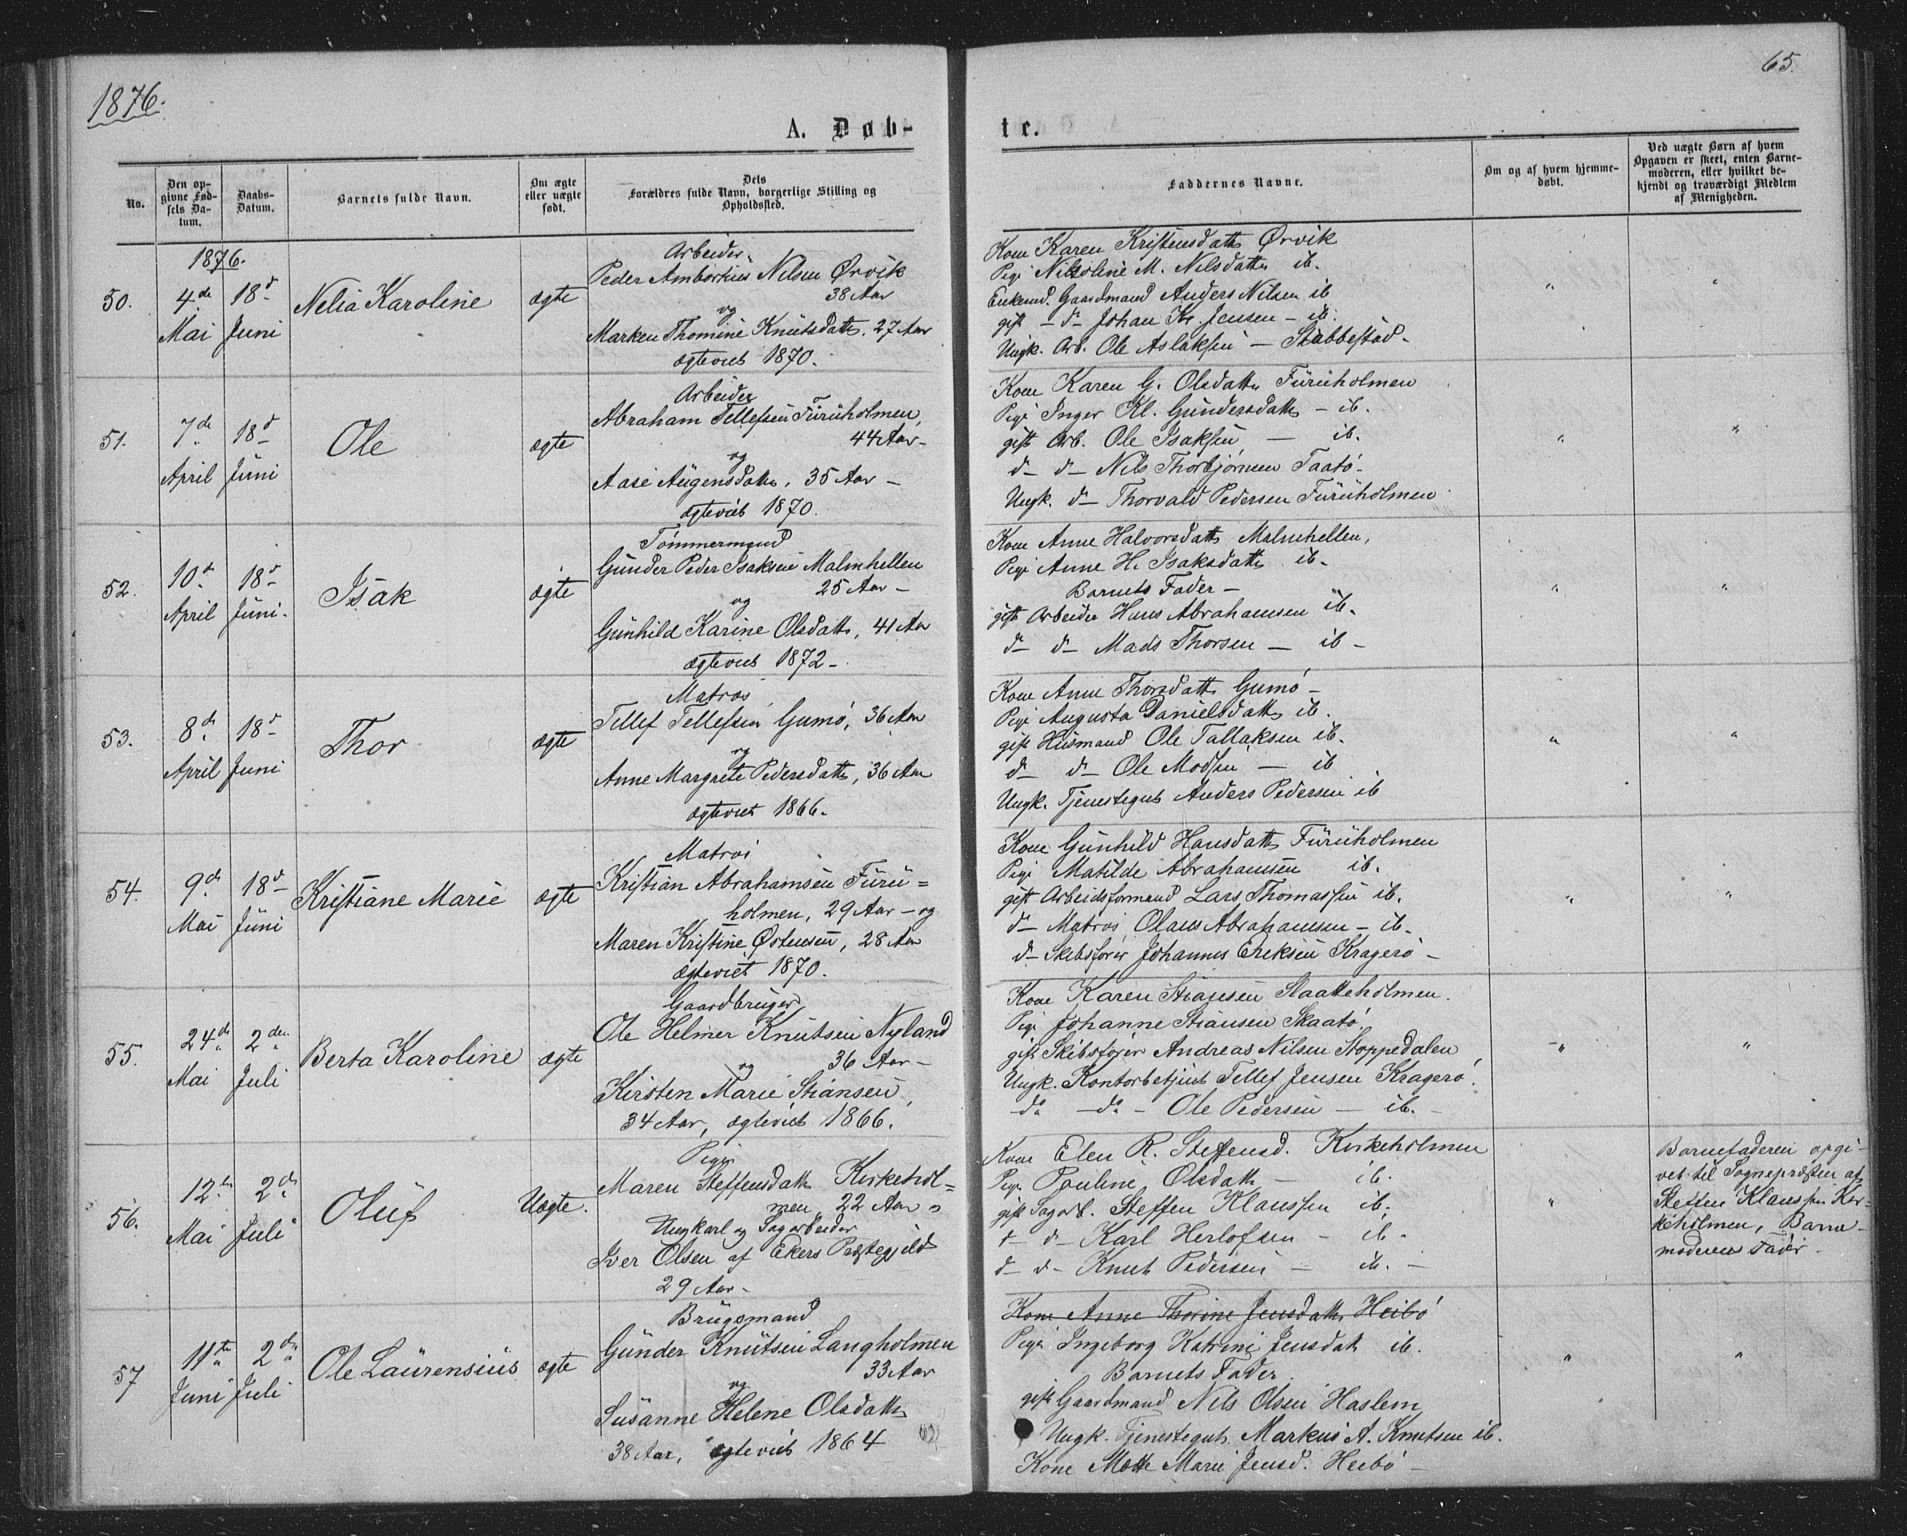 1876.
65.
A. Døb-
te.
No.
Den op-
givne Fød-
sels Da-
tum.
Daabs-
Datum.
Barnets fulde Navn.
Om ægte
eller uægte
født.
Dets
Forældres fulde Navn, borgerlige Stilling og
Opholdssted.
Faddernes Navne.
Om og af hvem hjemme-
døbt.
Ved uægte Børn af hvem
Opgaven er skeet, enten Barne-
moderen, eller hvilket be-
kjendt og troværdigt Medlem
af Menigheden.
1876.
50.
4de
Mai
18d
Juni
Nelia Karoline
ægte
Arbeider
Peder Ambortius Nilsen Ørvik
38 Aar
og
Marken Thomine Knutsdatt, 27 Aar
ægteviet 1870.
Kone Karen Kristensdatt Ørvik
Pige Nikoline M. Nilsdatt ib.
Enkemd. Gaardmand Anders Nilsen ib
gift – do Johan Kr. Jensen – ib.
Ungk. Arb. Ole Aslaksen – Stabbestad.
"
"
51.
7de
April
18d
Juni
Ole
ægte
Arbeider
Abraham Tellefsen Furuholmen,
44 Aar –
og
Aase Augensdatt, 35 Aar –
ægteviet 1870.
Kone Karen G. Olsdatt Furuholmen
Pige Inger Kl. Gundersdatt – ib.
gift Arb. Ole Isaksen – ib.
do do Nils Thorbjørnsen Taatø.
Ungk. do Thorvald Pedersen Furuholmen.
"
"
52.
10d
April
18d
Juni.
Isak
ægte
Tømmermand
Gunder Peder Isaksen Malmhellen
25 Aar –
og
Gunhild Karine Olsdatt, 41 Aar
ægteviet 1872 –
Kone Anne Halvorsdatt Malmhellen,
Pige Anne H. Isaksdatt ib.
Barnets Fader –
gift Arbeider Hans Abrahamsen ib.
do do Mads Thorsen – ib –
"
"
53.
8d
April
18d
Juni
Thor
ægte
Matros
Tellef Tellefsen Gumø, 36 Aar
og
Anne Margrete Pedersdatt, 36 Aar
ægteviet 1866.
Kone Anne Thorsdatt Gumø –
Pige Augusta Danielsdatt ib.
gift Husmand Ole Tallaksen ib.
do do Ole Madsen – ib
Ungk. Tjenestegut Anders Pedersen ib
"
"
54.
9d
Mai
18d
Juni
Kristiane Marie
ægte
Matros
Kristian Abrahamsen Furu=
holmen, 29 Aar – og
Maren Kristine Østensen, 28 Aar
ægteviet 1870.
Kone Gunhild Hansdatt Furuholmen
Pige Matilde Abrahamsen ib.
gift Arbeidsformand Lars Thomassen ib.
do Matros Olaus Abrahamsen – ib.
do Skibsfører Johannes Eriksen Kragerø –
"
"
55.
24d
Mai
2den
Juli
Berta Karoline
ægte
Gaardbruger
Ole Helmer Knutsen Nyland
36 Aar –
og
Kirsten Marie Stiansen,
34 Aar, ægteviet 1866.
Kone Karen Stiansen Slaatteholmen.
Pige Johanne Stiansen Skaatø
gift Skibsfører Andreas Nilsen Stoppedalen
Ungk. Kontorbetjent Tellef Jensen Kragerø.
do do – Ole Pedersen – ib. –
"
"
56.
12te
Mai
2d
Juli
Oluf
Uægte.
Pige
Maren Steffensdatt Kirkehol=
men, 22 Aar og
Ungkarl og Sagarbeider
Iver Olsen af Ekers Præstegjeld
29 Aar –
Kone Elen R. Steffensd. Kirkeholmen
Pige Pouline Olsdatt – ib.
gift Sagarb. Steffen Klaussen ib.
do do Karl Herlofsen – ib.
do do Knut Pedersen – ib. –
"
Barnefaderen opgi-
vet til Sognepræsten af
Steffen Klaussen Kir-
keholmen, Barne-
moderens Fader.
57
11te
Juni
2d
Juli
Ole Laurensius
ægte
Brugsmand
Gunder Knutsen Langholmen
33 Aar
og
Susanne Helene Olsdatt
38 Aar, ægteviet 1864
Kone Anne Thorine Jensdatt Heibø
Pige Ingeborg Katrine Jensdatt ib.
Barnets Fader.
gift Gaardmand Nils Olsen Haslem
Ungk. Tjenestegut Markus A. Knutsen ib.
Kone Mette Marie Jensd. Heibø –
"
"